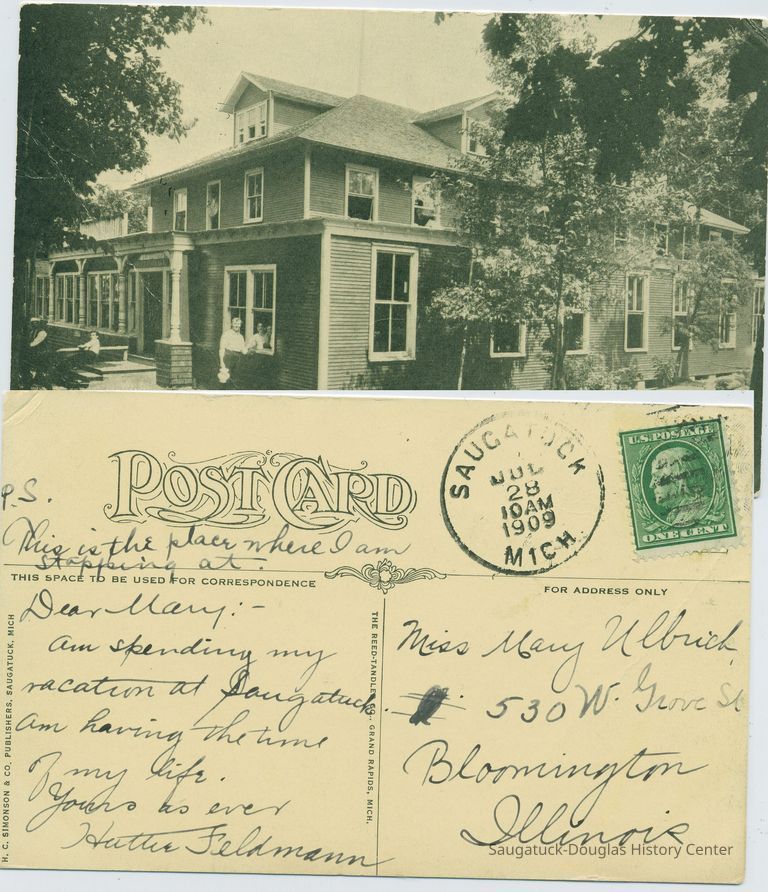 POST CARD
SAUGATUCK
JUL
28
10 AM
1909
MICH.
U.S. POSTAGE
ONE CENT
P.S.
This is the place where I am
stopping at.
THIS SPACE TO BE USED FOR CORRESPONDENCE
FOR ADDRESS ONLY
Dear Mary:-
Am spending my
vacation at Saugatuck.
Am having the time
of my life.
Yours as ever
Hattie Feldmann
H. C. SIMONSON & CO. PUBLISHERS, SAUGATUCK, MICH
THE REED-TANDLER CO., GRAND RAPIDS, MICH.
Miss Mary Ulbrich
530 W. Grove St
Bloomington
Illinois
Saugatuck-Douglas History Center